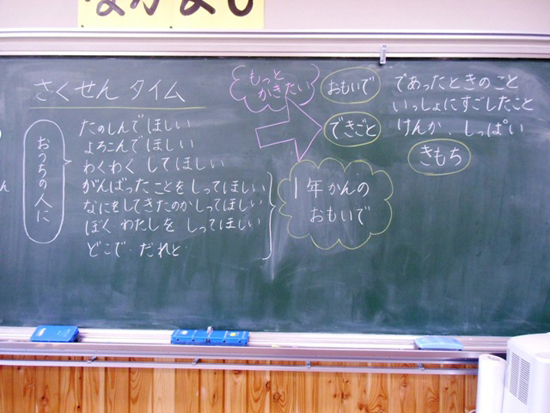 なかよし
さくせんタイム
おうちの人に
たのしんでほしい
よろこんでほしい
わくわくしてほしい
がんばったことをしってほしい
なにをしてきたのかしってほしい
ぼくわたしをしってほしい
どこで・だれと
1年かんの
おもいで
もっと
かきたい
おもいで
できごと
であったときのこと
いっしょにすごしたこと
けんか、しっぱい
きもち